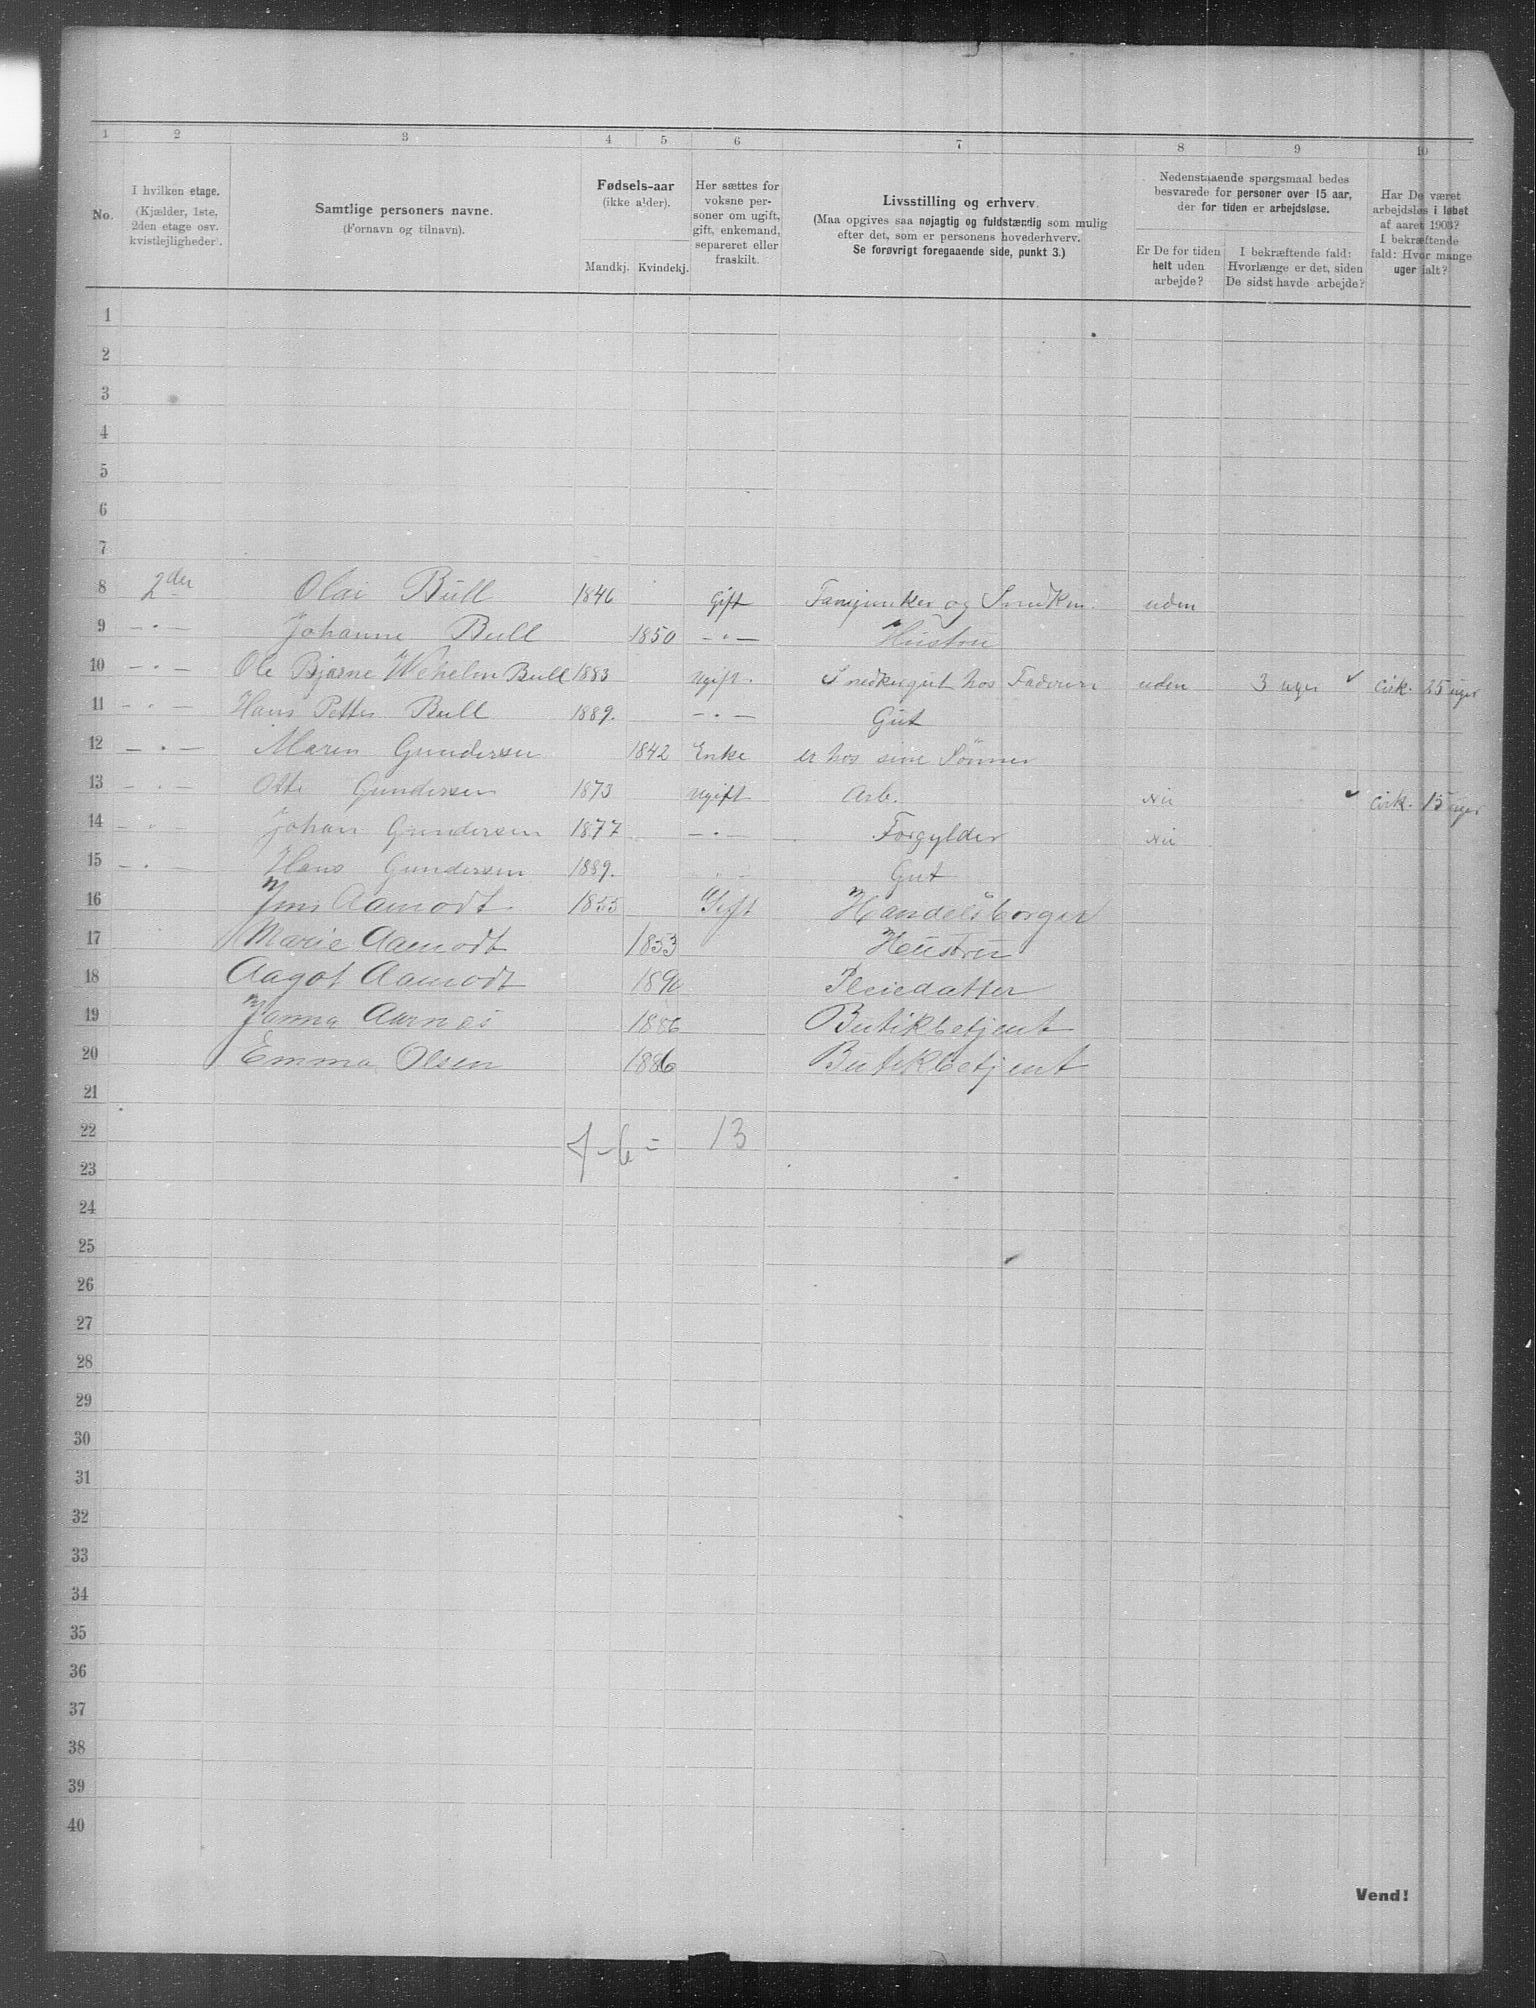 1 2 3 4 5 6 7 8 9 10
No.
I hvilken etage.
(Kjælder, 1ste,
2den etage osv.
kvistlejligheder).
Samtlige personers navne.
(Fornavn og tilnavn).
Fødsels-aar
(ikke alder).
Mandkj. Kvindekj.
Her sættes for
voksne per-
soner om ugift,
gift, enkemand,
separeret eller
fraskilt.
Livsstilling og erhverv.
(Maa opgives saa nøjagtig og fuldstændig som mulig
efter det, som er personens hovederhverv.
Se forøvrigt foregaaende side, punkt 3.)
Nedenstaaende spørgsmaal bedes
besvarede for personer over 15 aar,
der for tiden er arbejdsløse.
Er De for tiden
helt uden
arbejde?
I bekræftende fald:
Hvorlænge er det, siden
De sidst havde arbejde?
Har De været
arbejdsløs i løbet
af aaret 1903?
I bekræftende
fald: Hvor mange
uger ialt?
1
2
3
4
5
6
7
8 2den Olai Bull 1846 Gift Fanejunker og uden
9 — " — Johanne Bull 1850 — " — Hustru
10 — " — Ole Bjarne Wehelm Bull 1883 ugift. Snedkergut hos Faderen uden 3 uger ✓ cirk. 25 uger
11 — " — Hans Petter Bull 1889. — " — Gut
12 — " — Maren Gundersen 1842 Enke er hos sine Sønner
13 — " — Otto Gundersen 1873 ugift Arb. Nei ✓ cirk. 15 uger
14 — " — Johan Gundersen 1877 — " — Forgylder Nei
15 — " — Hans Gundersen 1889. " Gut
16 Jens Aamodt 1855 Gift Handelsborger
17 Marie Aamodt 1853 Hustru
18 Aagot Aamodt 1890 Pleiedatter
19 Janna Aarnes 1886 Butikbetjent
20 Emma Olsen 1886 Butikbetjent
21
22 7 - 6 = 13
23
24
25
26
27
28
29
30
31
32
33
34
35
36
37
38
39
40
Vend!